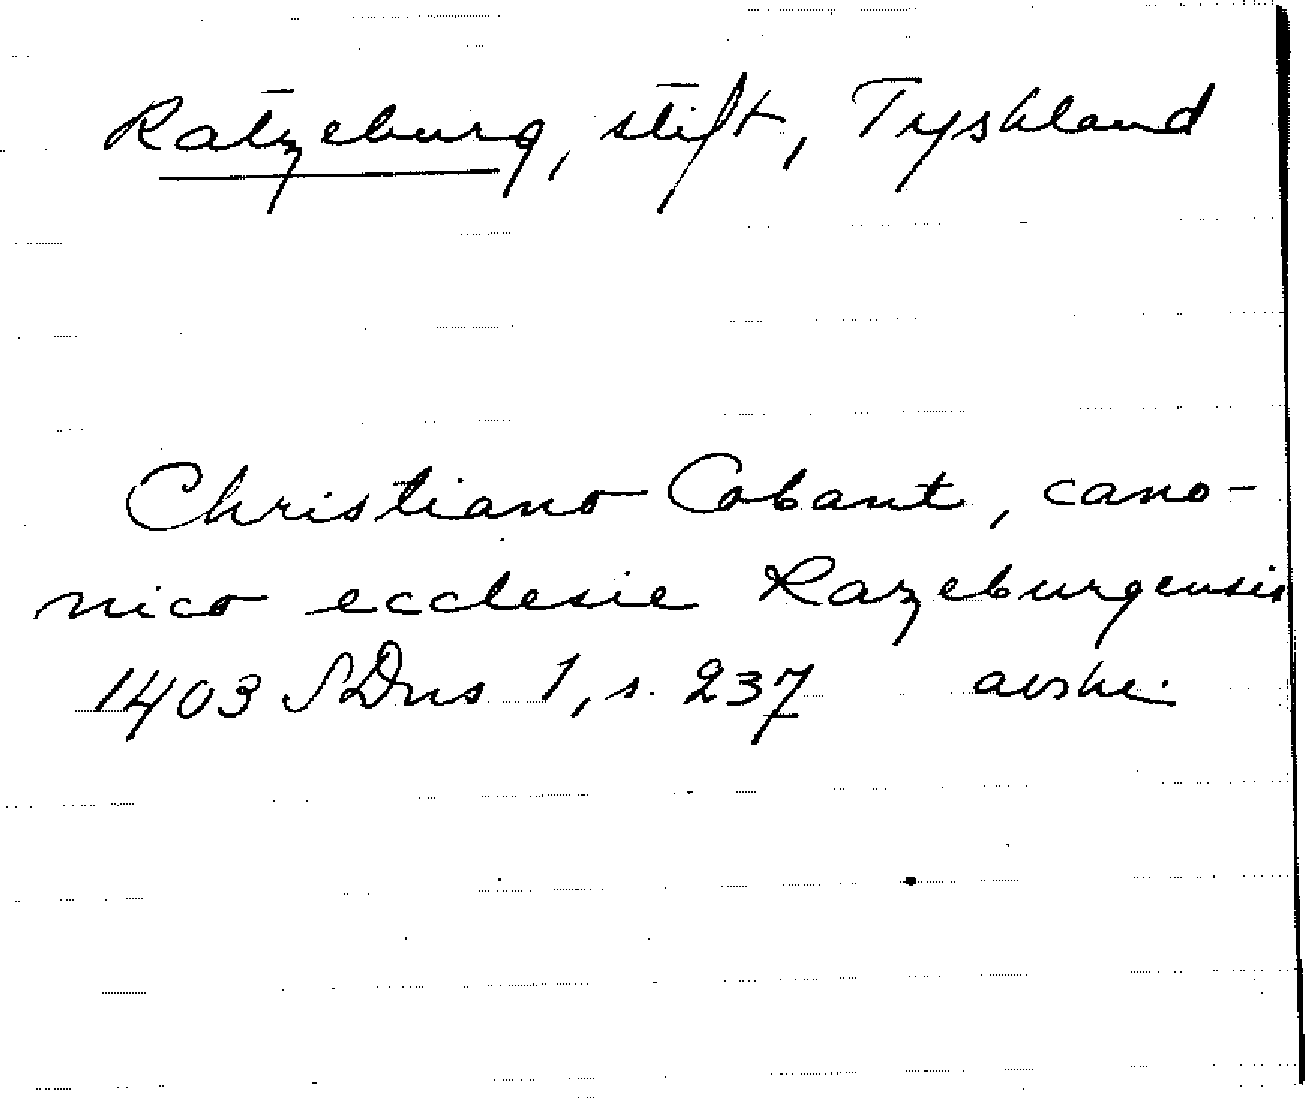 Ratzeburg, stift, Tyskland
Christiano Cobant, cano-
nico ecclesie Razeburgensis
1403 SDns 1, s. 237 avskr.